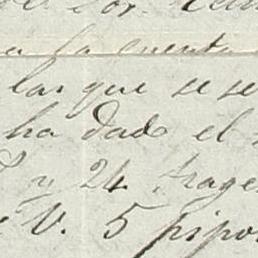 a la cuenta
las que se se
ha dado el
y 24 trage
V. 5 pipo